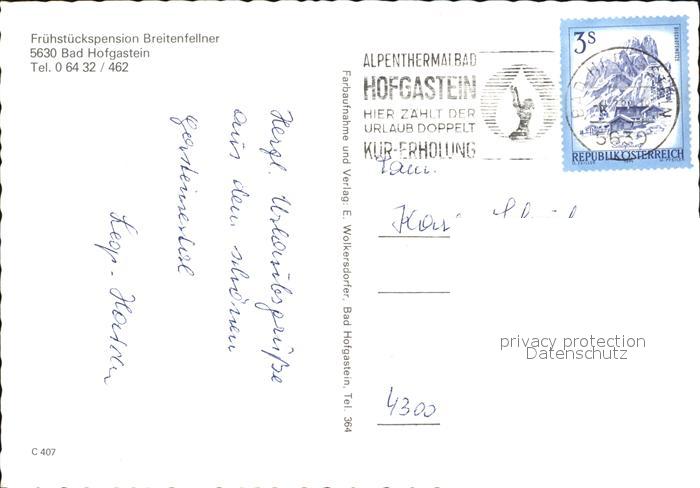 Frühstückspension Breitenfellner
5630 Bad Hofgastein
Tel. 0 64 32 / 462
Herzl. Urlaubsgrüße
aus dem schönen
Gasteinertal
C 407
Farbaufnahme und Verlag: E. Wolkersdorfer, Bad Hofgastein, Tel. 364
ALPENTHERMALBAD
HOFGASTEIN
HIER ZÄHLT DER
URLAUB DOPPELT
KUR-ERHOLUNG
3S
5630
REPUBLIK ÖSTERREICH
Fam.
privacy protection
Datenschutz
4300